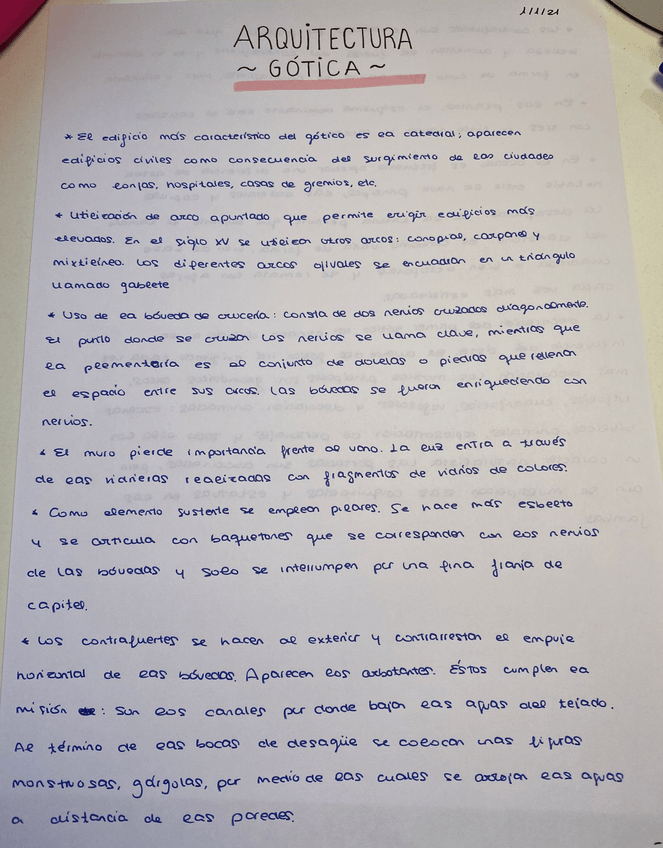 1/1/21
ARQUITECTURA
~ GÓTICA ~
* El edificio más característico del gótico es la catedral; aparecen
edificios civiles como consecuencia del surgimiento de las ciudades
como lonjas, hospitales, casas de gremios, etc.
* Utilización de arco apuntado que permite erigir edificios más
elevados. En el siglo XV se utilizan otros arcos: conopial, carpanel y
mixtilíneo. Los diferentes arcos ojivales se encuadran en un triángulo
llamado gablete
* Uso de la bóveda de crucería: consta de dos nervios cruzados diagonalmente.
El punto donde se cruzan los nervios se llama clave, mientras que
la plementería es al conjunto de dovelas o piedras que rellenan
el espacio entre sus arcos. Las bóvedas se fueron enriqueciendo con
nervios.
* El muro pierde importancia frente al vano. La luz entra a través
de las vidrieras realizadas con fragmentos de vidrios de colores.
* Como elemento sustente se emplean pilares. Se hace más esbelto
y se articula con baquetones que se corresponden con los nervios
de las bóvedas y solo se interrumpen por una fina franja de
capitel.
* Los contrafuertes se hacen al exterior y contrarrestan el empuje
horizontal de las bóvedas. Aparecen los arbotantes. Éstos cumplen la
misión : Son los canales por donde bajan las aguas del tejado.
Al término de las bocas de desagüe se colocan unas figuras
monstruosas, gárgolas, por medio de las cuales se arrojan las aguas
a distancia de las paredes.